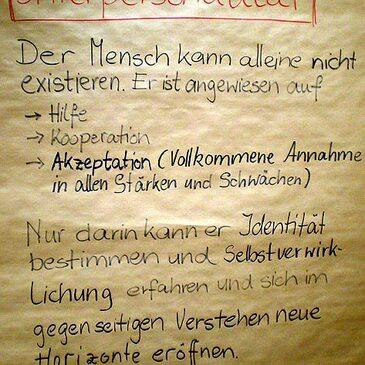 Interpersonalität
Der Mensch kann alleine nicht
existieren. Er ist angewiesen auf
→ Hilfe
→ Kooperation
→ Akzeptation (Vollkommene Annahme
in allen Stärken und Schwächen)
Nur darin kann er Identität
bestimmen und Selbstverwirk-
lichung erfahren und sich im
gegenseitigen Verstehen neue
Horizonte eröffnen.